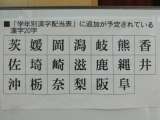 ■「学年別漢字配当表」に追加が予定されている漢字20字
茨 媛 岡 潟 岐 熊 香
佐 埼 崎 滋 鹿 縄 井
沖 栃 奈 梨 阪 阜